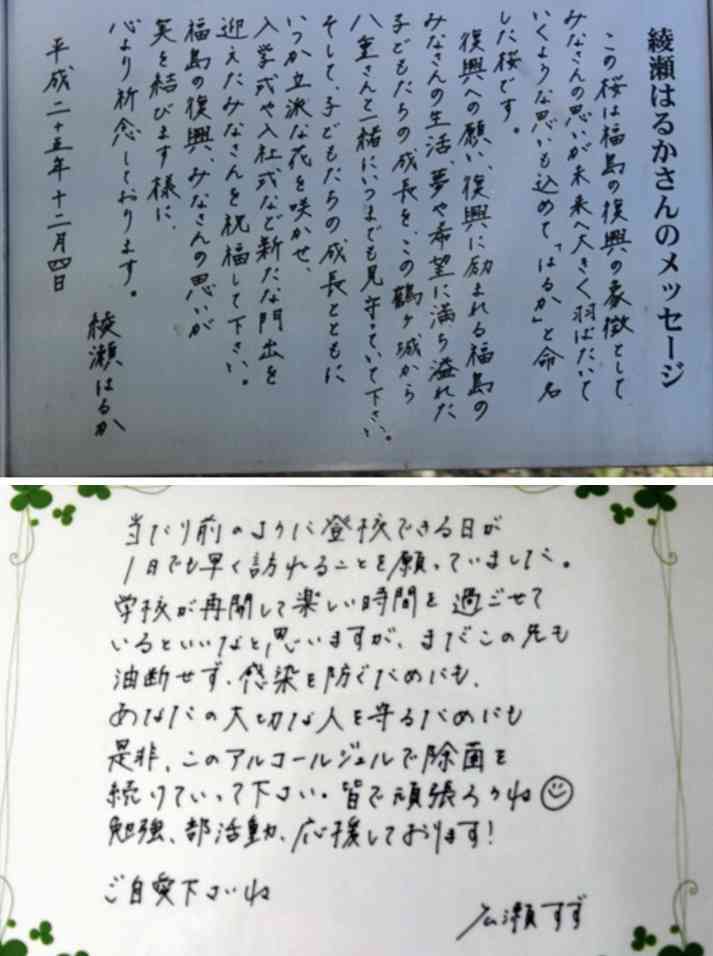 綾瀬はるかさんのメッセージ
この桜は福島の復興の象徴として
みなさんの思いが未来へ大きく羽ばたいて
いくような思いも込めて「はるか」と命名
した桜です。
復興への願い、復興に励まれる福島の
みなさんの生活、夢や希望に満ち溢れた
子どもたちの成長を、この鶴ヶ城から
八重さんと一緒にいつまでも見守っていて下さい。
そして、子どもたちの成長とともに
いつか立派な花を咲かせ、
入学式や入社式など新たな門出を
迎えたみなさんを祝福して下さい。
福島の復興、みなさんの思いが
実を結びます様に、
心より祈念しております。
平成二十五年十二月四日
綾瀬はるか
当たり前のように登校できる日が
1日でも早く訪れることを願っていました。
学校が再開して楽しい時間を過ごせて
いるといいなと思いますが、まだこの先も
油断せず、感染を防ぐためにも、
あなたの大切な人を守るためにも
是非、このアルコールジェルで除菌を
続けていって下さい。皆で頑張ろうね☺
勉強、部活動、応援しております!
ご自愛下さいね
広瀬すず